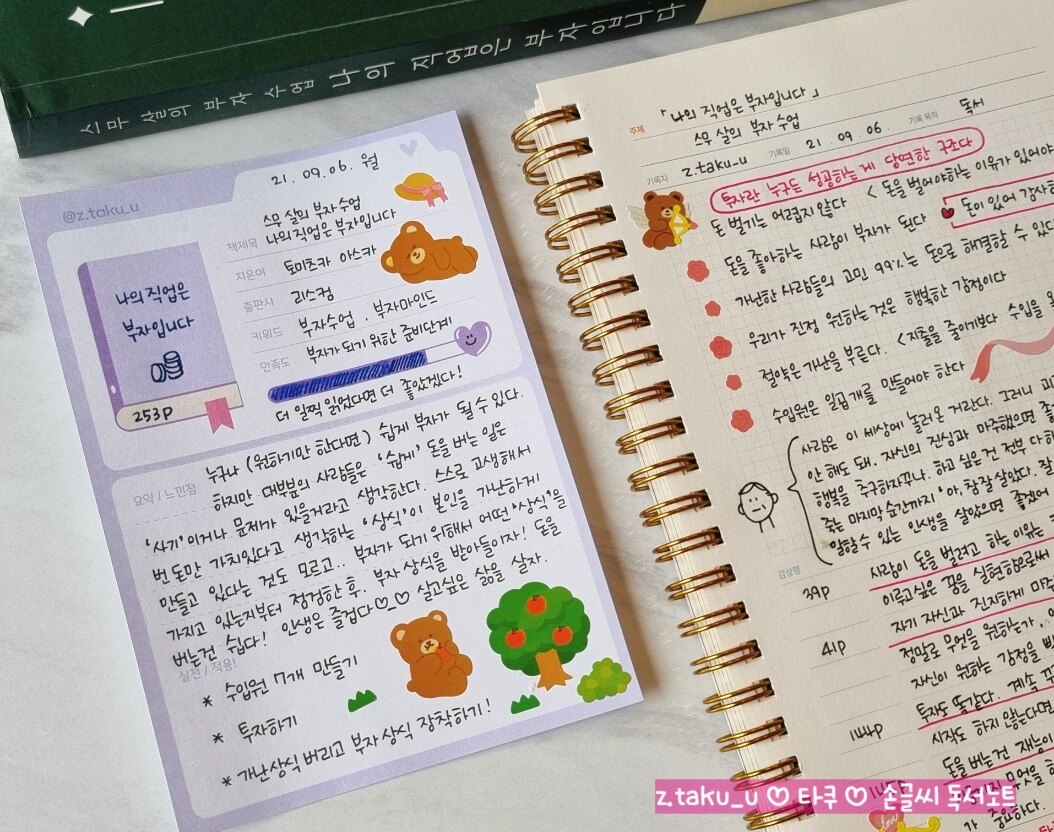 스무 살의 부자 수업 나의 직업은 부자입니다
@z.taku_u
21. 09. 06. 월
책제목
스무 살의 부자 수업
나의 직업은 부자입니다
지은이 토미츠카 아스카
출판사 리스컴
키워드 부자수업 . 부자마인드
만족도 부자가 되기 위한 준비단계
더 일찍 읽었다면 더 좋았겠다!
나의 직업은
부자입니다
253P
요약 / 느낀점
누구나 (원하기만 한다면) 쉽게 부자가 될 수 있다.
하지만 대부분의 사람들은 '쉽게' 돈을 버는 일은
'사기'이거나 문제가 있을거라고 생각한다. 스스로 고생해서
번 돈만 가치있다고 생각하는 '상식'이 본인을 가난하게
만들고 있다는 것도 모르고.. 부자가 되기 위해서 어떤 '상식'을
가지고 있는지부터 점검한 후, 부자 상식을 받아들이자! 돈을
버는건 쉽다! 인생은 즐겁다♡_♡ 살고싶은 삶을 살자.
실천 / 적용!
* 수입원 7개 만들기
* 투자하기
* 가난상식 버리고 부자 상식 장착하기!
주제 「나의 직업은 부자입니다」
스무 살의 부자 수업
기록자 z.taku_u 기록일 21. 09. 06. 기록 목적 독서
투자란 누구든 성공하는 게 당연한 구조다
돈 벌기는 어렵지 않다 < 돈을 벌어야하는 이유가 있어야
돈을 좋아하는 사람이 부자가 된다 돈이 있어 감사
가난한 사람들의 고민 99%는 돈으로 해결할 수 있다
우리가 진정 원하는 것은 행복한 감정이다
절약은 가난을 부른다. < 지출을 줄이기보다 수입을
수입원은 일곱 개를 만들어야 한다
사람은 이 세상에 놀러온 거란다. 그러니
안 해도 돼. 자신의 진심과 마주했으면
행복을 추구하자꾸나. 하고 싶은 건 전부 다
죽는 마지막 순간까지 '아, 참 잘 살았다.
말할 수 있는 인생을 살았으면 좋겠어
감상평
39p 사람이 돈을 벌려고 하는 이유는
이루고싶은 꿈을 실현함으로써
41p 자기 자신과 진지하게
정말로 무엇을 원하는가,
자신이 원하는 감정을
144p 투자도 똑같다. 계속
시작도 하지 않는다면
돈을 버는건 재능이
무엇을
가 중요하다.
love
z.taku_u ♡ 타쿠 ♡ 손글씨 독서노트